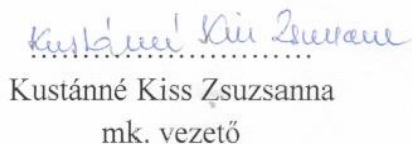 Kustánné Kiss Zsuzsanna
Kustánné Kiss Zsuzsanna
mk. vezető